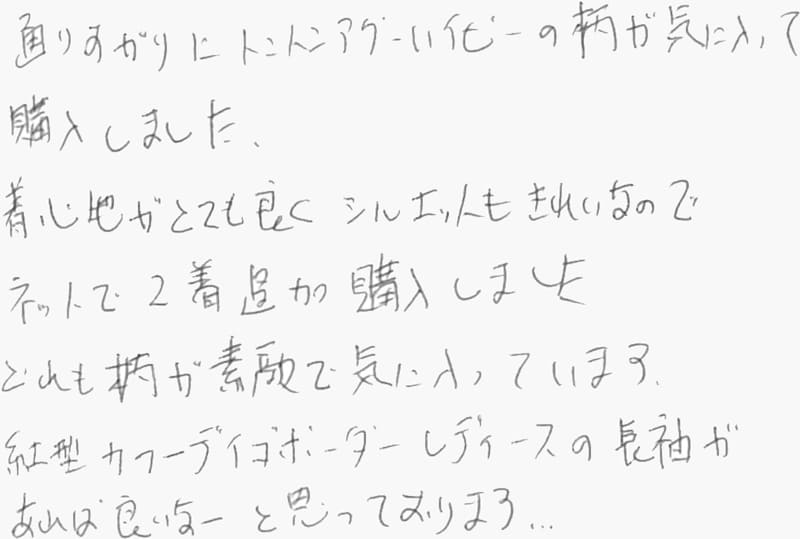 通りすがりにトントンアグーハイビーの柄が気に入って
購入しました、
着心地がとても良くシルエットもきれいなので
ネットで2着追加購入しました
どれも柄が素敵で気に入っています、
紅型カフーデイゴボーダーレディースの長袖が
あれば良いなーと思っております...